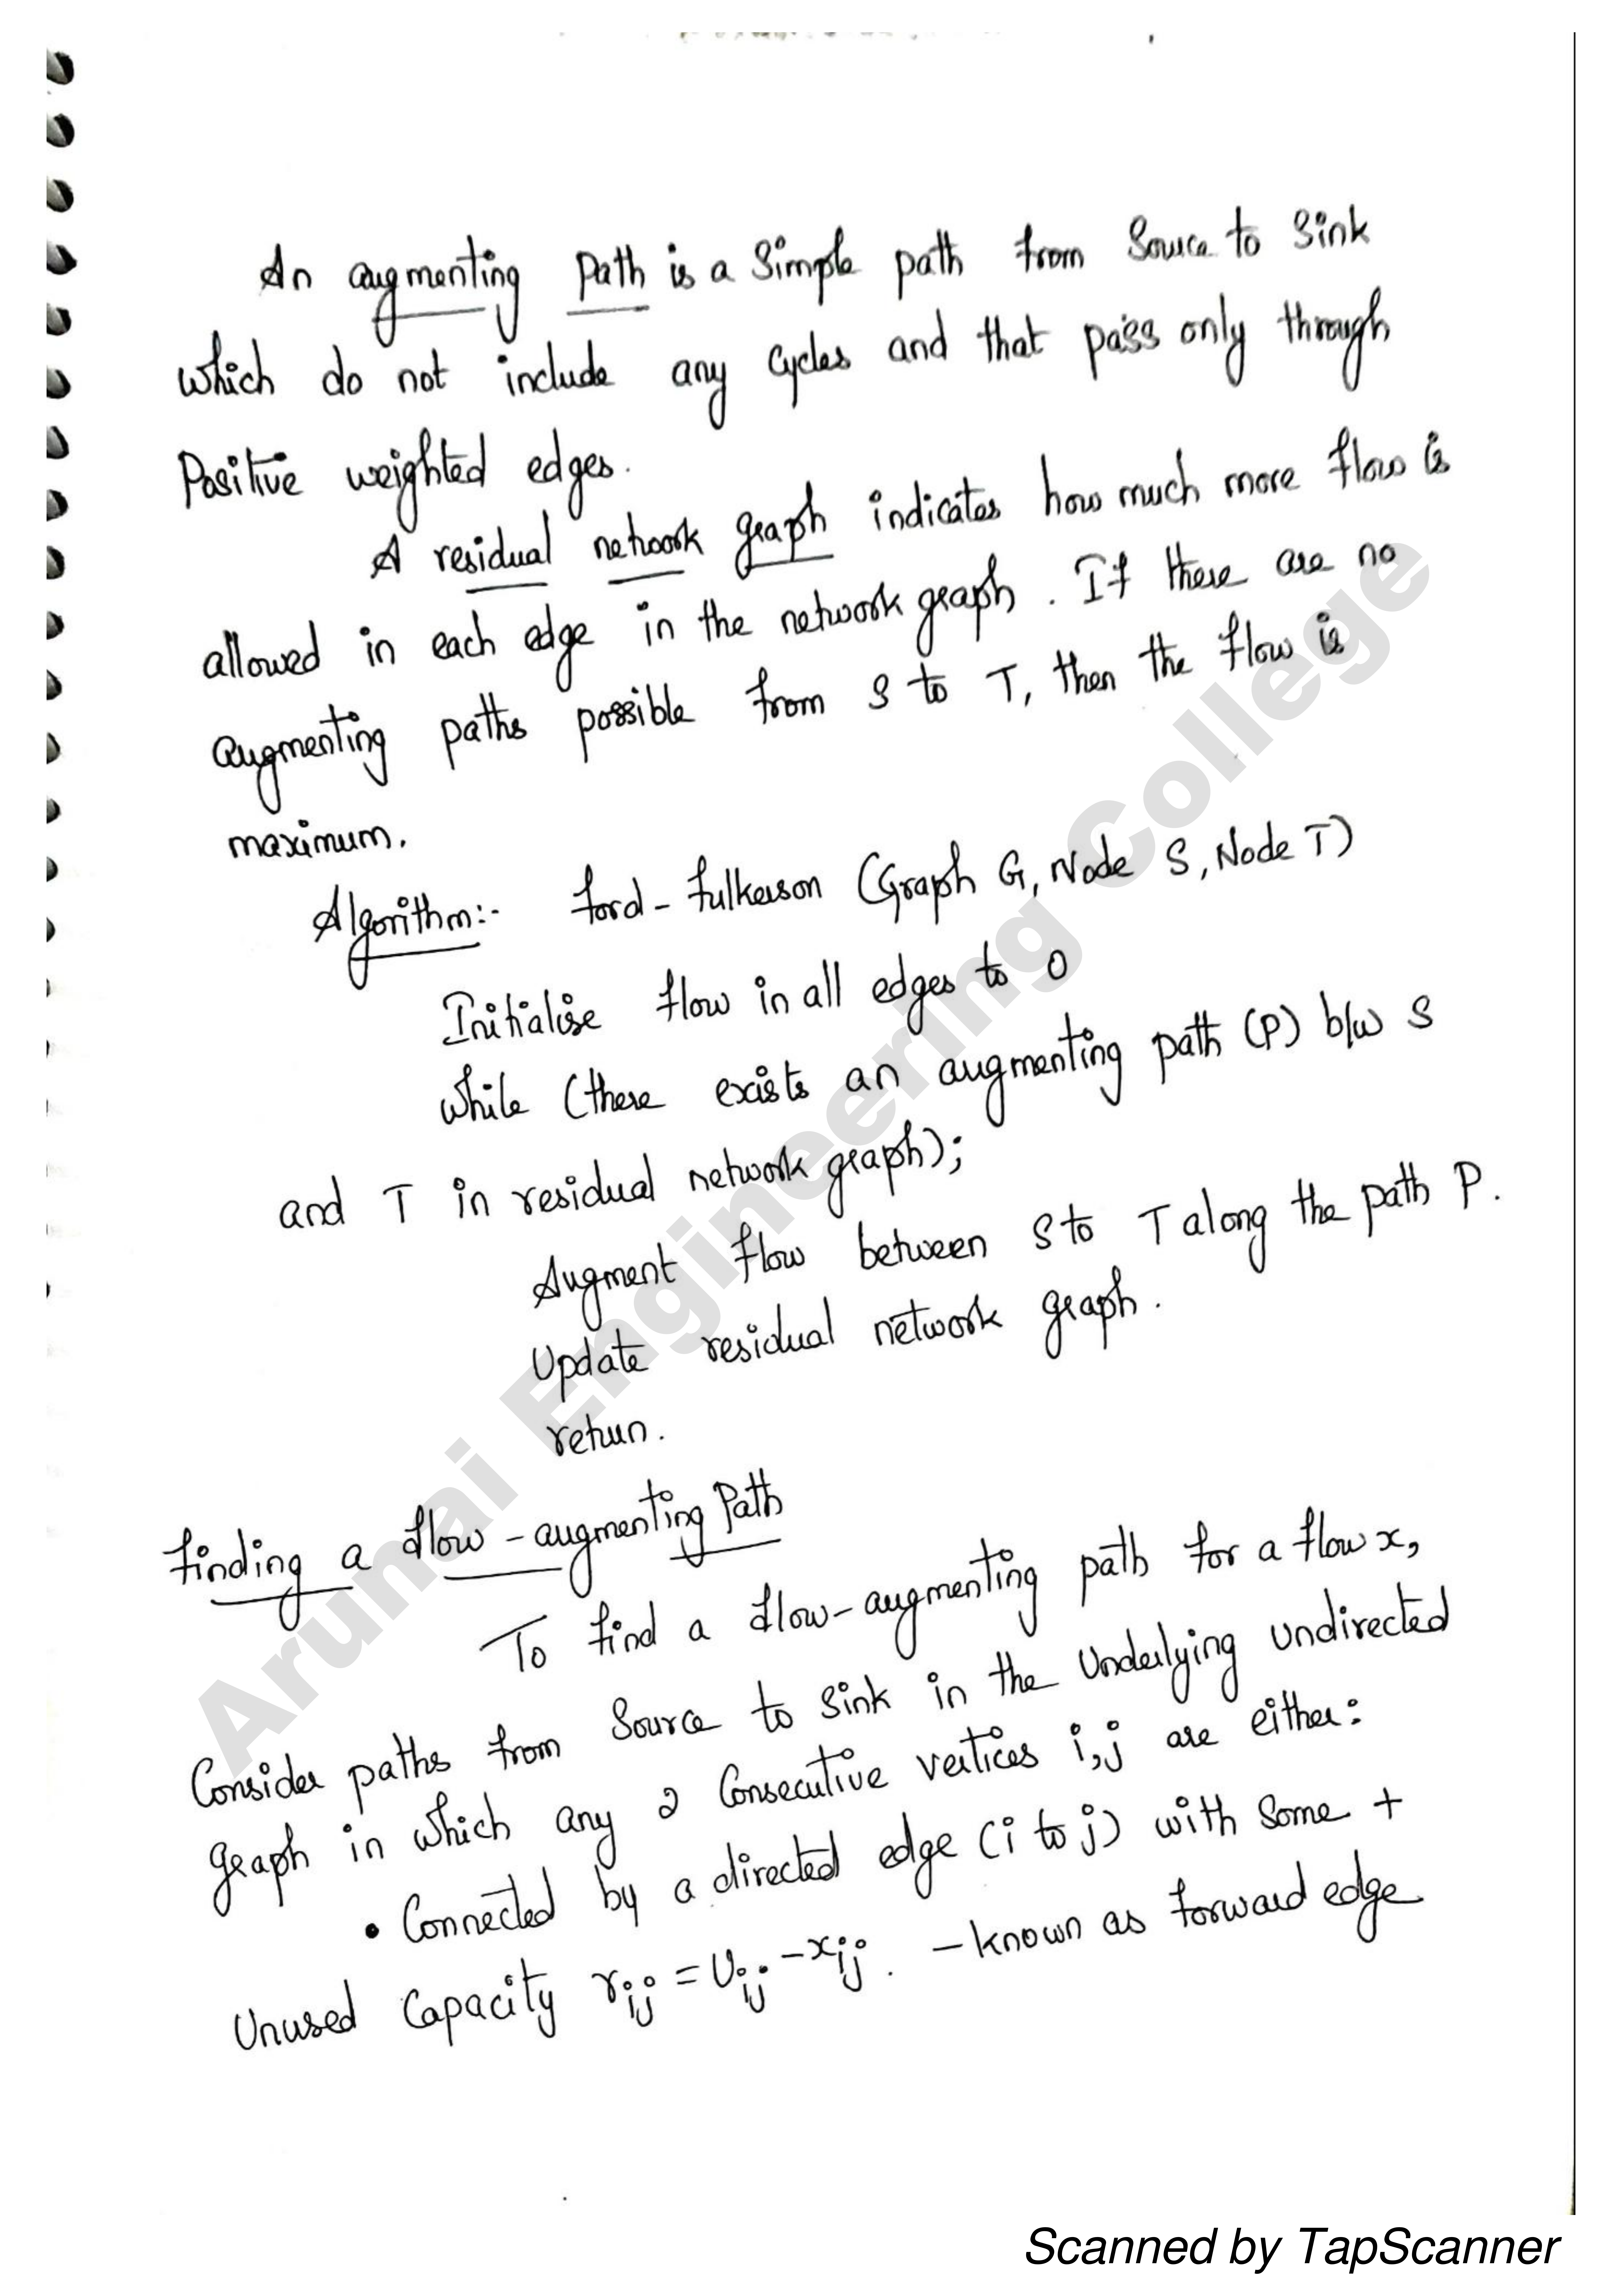 An augmenting Path is a Simple path from Source to Sink
which do not include any Cycles and that pass only through
Positive weighted edges.
A residual network graph indicates how much more flow is
allowed in each edge in the network graph. If there are no
augmenting paths possible from S to T, then the flow is
maximum.
Algorithm:- Ford-Fulkerson (Graph G, Node S, Node T)
Initialise flow in all edges to 0
while (there exists an augmenting path (P) b/w S
and T in residual network graph);
Augment flow between S to T along the path P.
Update residual network graph.
return.
Finding a flow-augmenting Path
To find a flow-augmenting path for a flow x,
Consider paths from Source to Sink in the underlying undirected
graph in which any 2 Consecutive vertices i,j are either:
• Connected by a directed edge (i to j) with some +
Unused Capacity rij = Uij - xij. - known as forward edge
Arunai Engineering College
Scanned by TapScanner